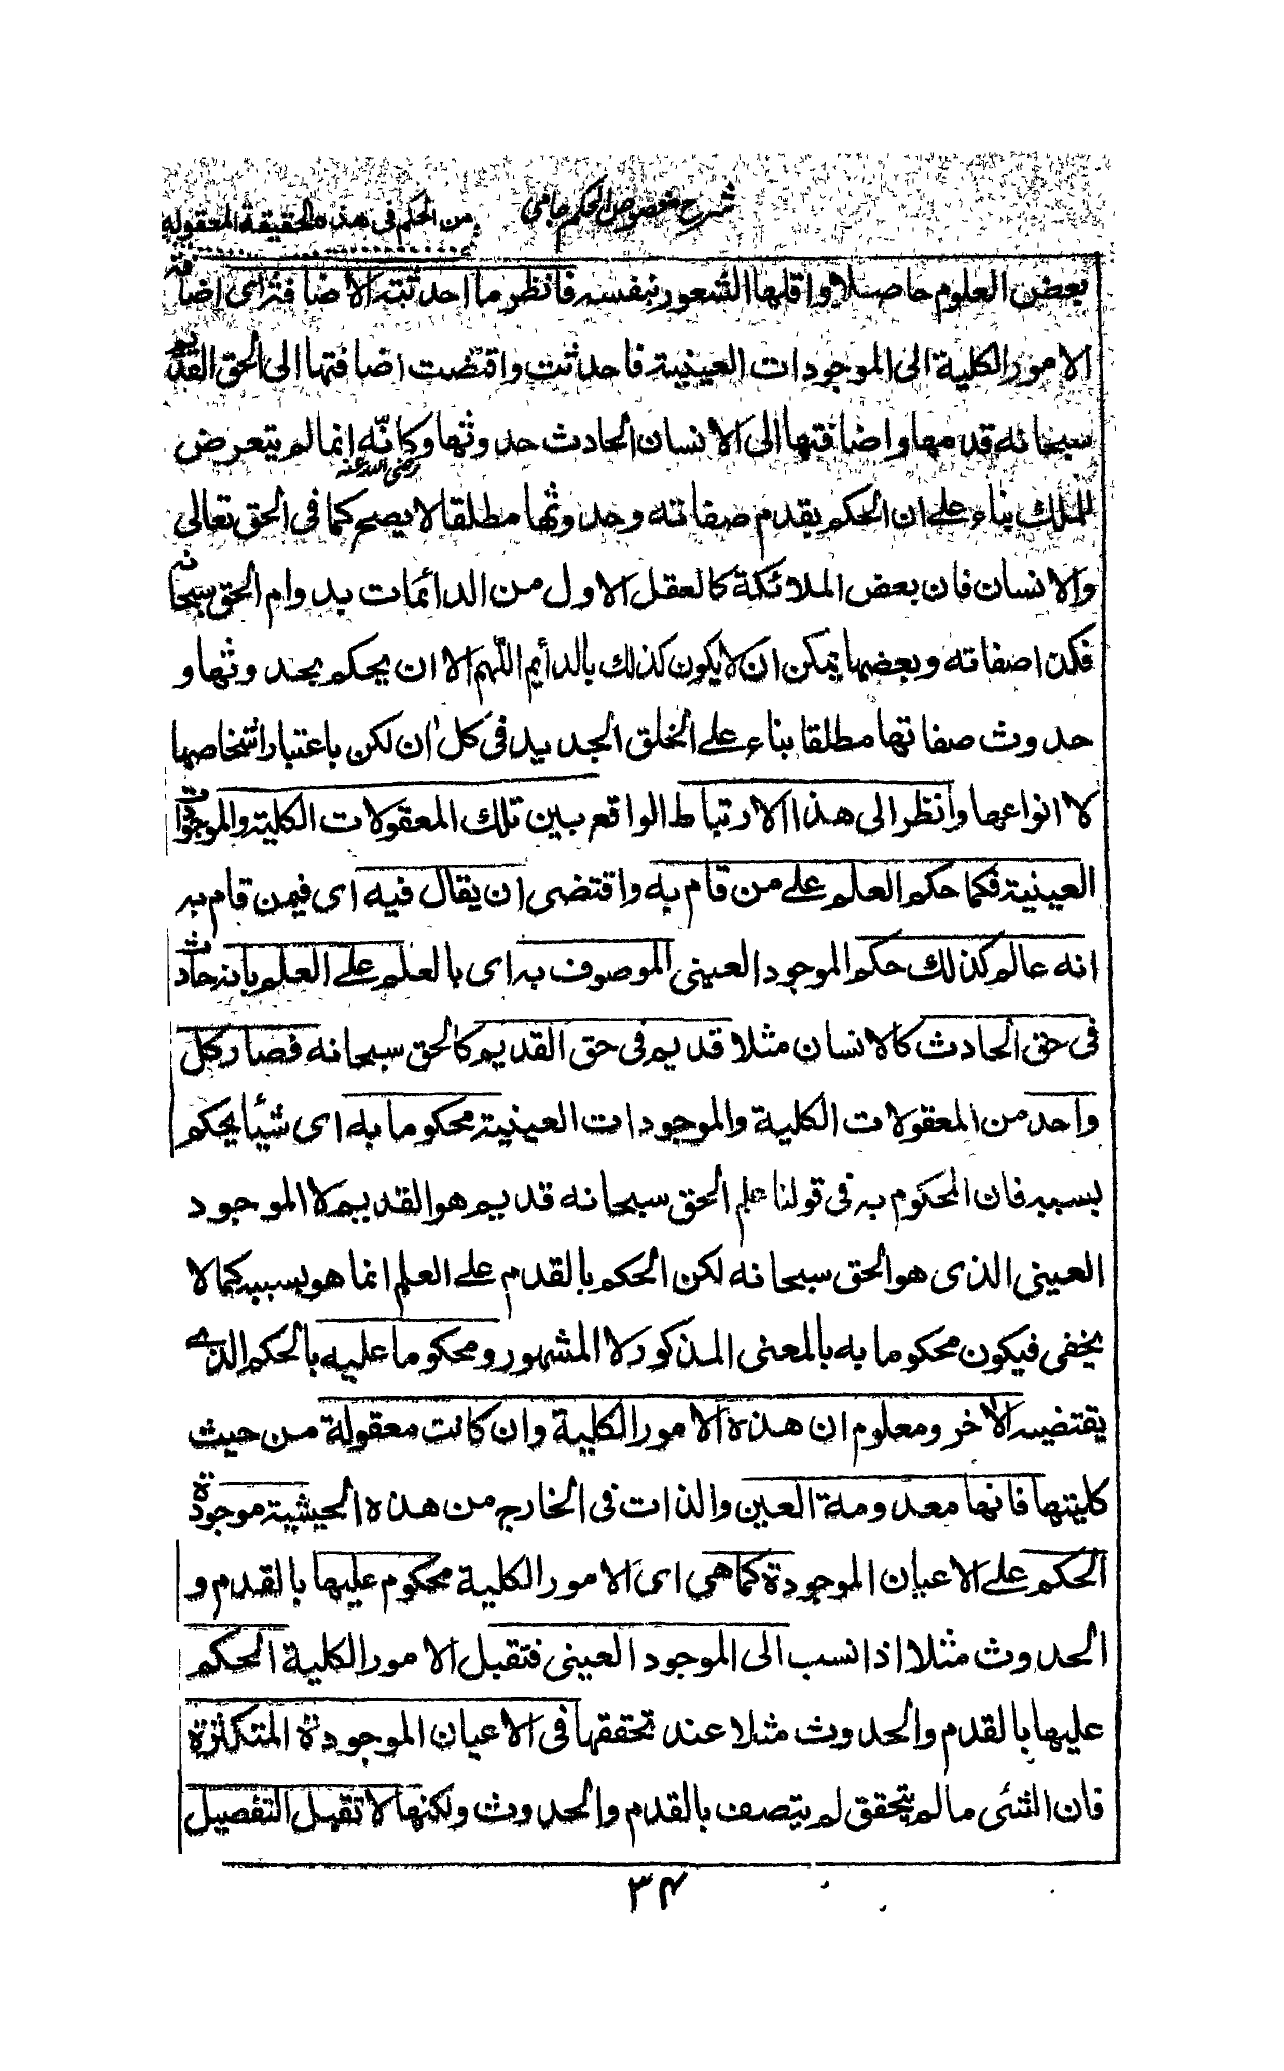 شرح فصوص الحكم جامی
من الحكم فی هذه الحقيقة المعقولة
بعض العلوم حاصلا واقلها الشعور بنفسه فانظر ما احدثته الاضافة ای اضافة
الامور الكلية الی الموجودات العينية فاحدثت واقتضت اضافتها الی الحق القديم
سبحانه قدمها واضافتها الی الانسان الحادث حدوثها وكانّه انما لم يتعرض
رضی الله عنه
للملك بناء علی ان الحكم بقدم صفاته وحدوثها مطلقا لا يصح كما فی الحق تعالی
والانسان فان بعض الملائكة كالعقل الاول من الدائمات بدوام الحق سبحانه
فكذا صفاته وبعضها يمكن ان لا يكون كذلك بالدأيم اللّهم الا ان يحكم بحدوثها و
حدوث صفاتها مطلقا بناء علی الخلق الجديد فی كل ان لكن باعتبار اشخاصها
لا انواعها وانظر الی هذا الارتباط الواقع بين تلك المعقولات الكلية والموجودات
العينية فكما حكم العلم علی من قام به واقتضی ان يقال فيه ای فيمن قام به
انه عالم كذلك حكم الموجود العينی الموصوف به ای بالعلم علی العلم بانه حادث
فی حق الحادث كالانسان مثلا قديم فی حق القديم كالحق سبحانه فصار كل
واحد من المعقولات الكلية والموجودات العينية محكوما به ای شيئا يحكم
بسببه فان المحكوم به فی قولنا علم الحق سبحانه قديم هو القديم لا الموجود
العينی الذی هو الحق سبحانه لكن الحكم بالقدم علی العلم انما هو بسببه كما لا
يخفی فيكون محكوما به بالمعنی المذكور لا المشهور ومحكوما عليه بالحكم الذی
يقتضيه الاخر ومعلوم ان هذه الامور الكلية وان كانت معقولة من حيث
كليتها فانها معدومة العين والذات فی الخارج من هذه الحيثية موجودة
الحكم علی الاعيان الموجودة كما هی ای الامور الكلية محكوم عليها بالقدم و
الحدوث مثلا اذا نسب الی الموجود العينی فتقبل الامور الكلية الحكم
عليها بالقدم والحدوث مثلا عند تحققها فی الاعيان الموجودة المتكثرة
فان الشئی ما لم يتحقق لم يتصف بالقدم والحدوث ولكنها لا تقبل التفصيل
۳۴